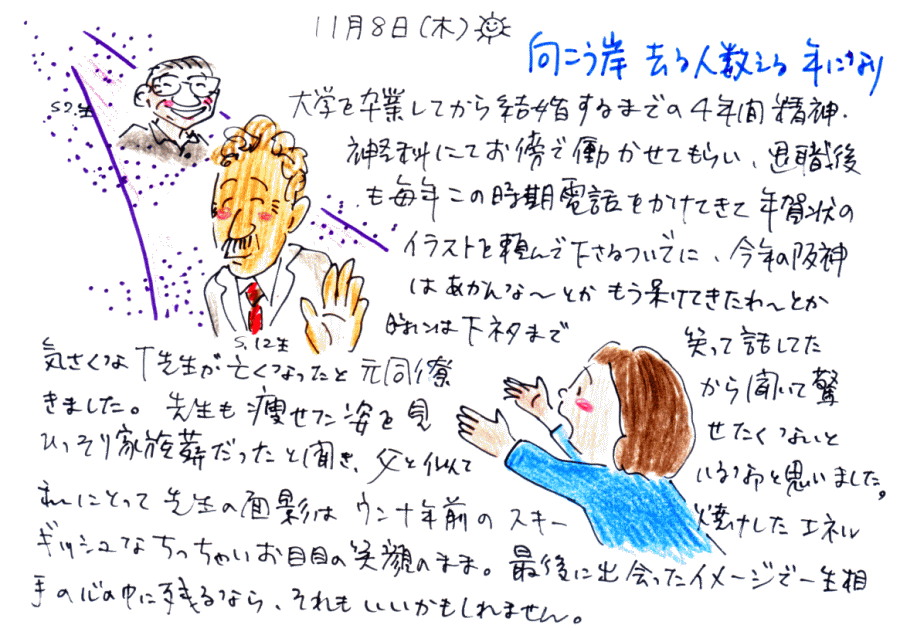 11月8日(木)
向こう岸 去る人数える 年になり
S2.生
大学を卒業してから結婚するまでの4年間精神・
神経科にてお傍で働かせてもらい、退職後
も毎年この時期電話をかけてきて年賀状の
イラストを頼んで下さるついでに、今年の阪神
はあかんな〜とか もう呆けてきたわ〜とか
時には下ネタまで 笑って話してた
S.12生
気さくなT先生が亡くなったと元同僚 から聞いて驚
きました。先生も痩せた姿を見 せたくないと
ひっそり家族葬だったと聞き、父と似て いるなと思いました。
私にとって先生の面影はウン十年前のスキー 焼けした エネル
ギッシュなちっちゃいお目目の笑顔のまま。最後に出会ったイメージで一生相
手の心の中に残るなら、それもいいかもしれません。